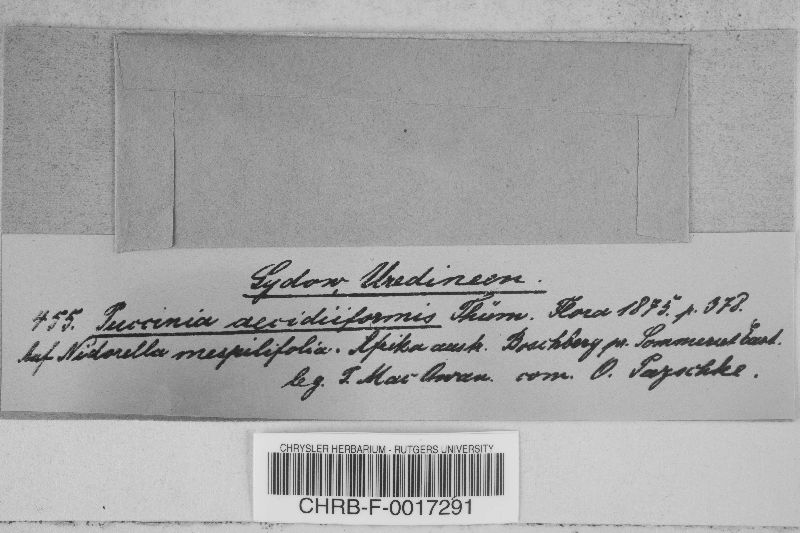 Sydow, Uredineen.
455. Puccinia aecidiiformis Thüm. Flora 1875. p. 378.
Auf Nidorella mespilifolia. Afrika austr. Boschberg pr. Sommerset East.
leg. T. Mac Owan. com. O. Pazschke.
CHRYSLER HERBARIUM - RUTGERS UNIVERSITY
CHRB-F-0017291